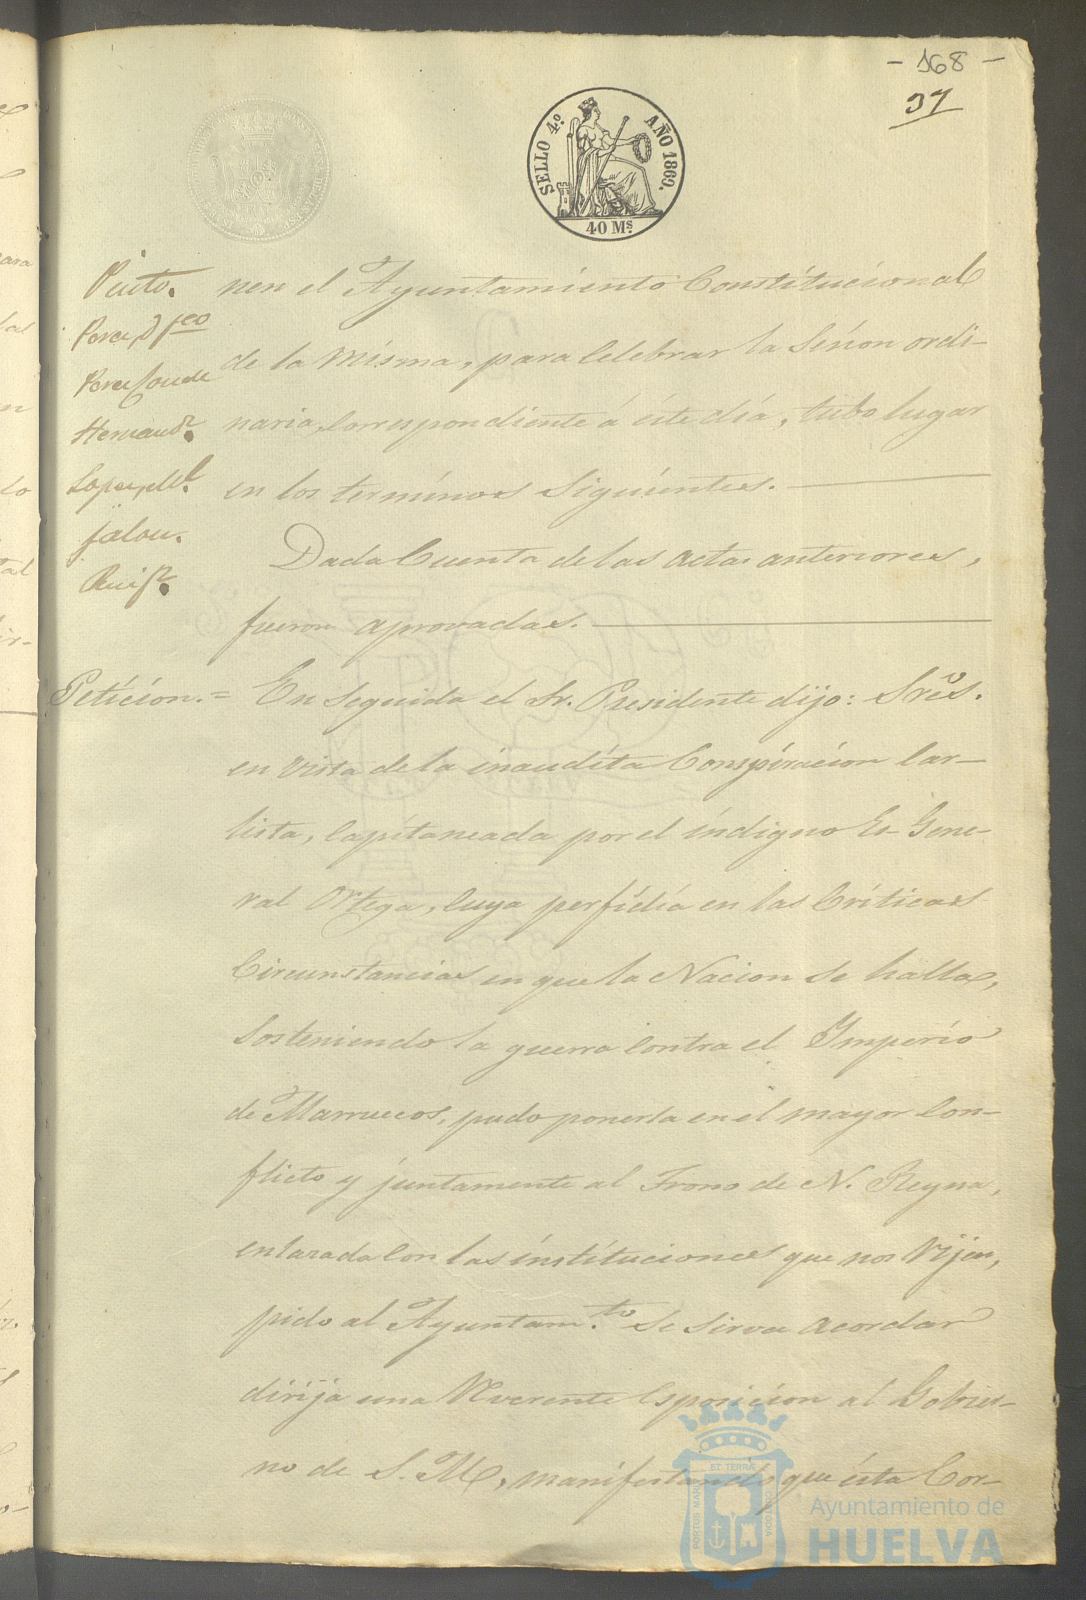 - 168 -
37
SELLO 4º AÑO 1860.
40 Ms.
Pinto.
Perez, D. Fco
Perez Conde
Hernandz.
Lopez, 
Jalon.
Ruifz.
nen el Ayuntamiento Constitucional
de la Misma, para Celebrar la Sesion ordi-
naria, Correspondiente á éste día, tubo lugar
en los términos Siguientes.
Dada Cuenta de las actas anteriores,
fueron aprovadas.
Petición. = En Seguida el Sr. Presidente dijo: Sres.
en vista de la inaudita Conspiración Car-
lista, Capitaneada por el indigno Ex-Gene-
ral Ortega, Cuya perfidia en las Críticas
Circunstancias en que la Nacion se halla,
Sosteniendo la guerra Contra el Imperio
de Marruecos, pudo ponerla en el mayor Con-
flicto y juntamente al Trono de N. Reyna,
enlazada Con las instituciones que nos Rijen,
pido al Ayuntamto. Se sirva acordar
dirija una Reverente Esposicion al Gobier-
no de S. M., manifestando que ésta Cor-
PORTUS MARIS ET TERRAE CUSTODIA
Ayuntamiento de
HUELVA